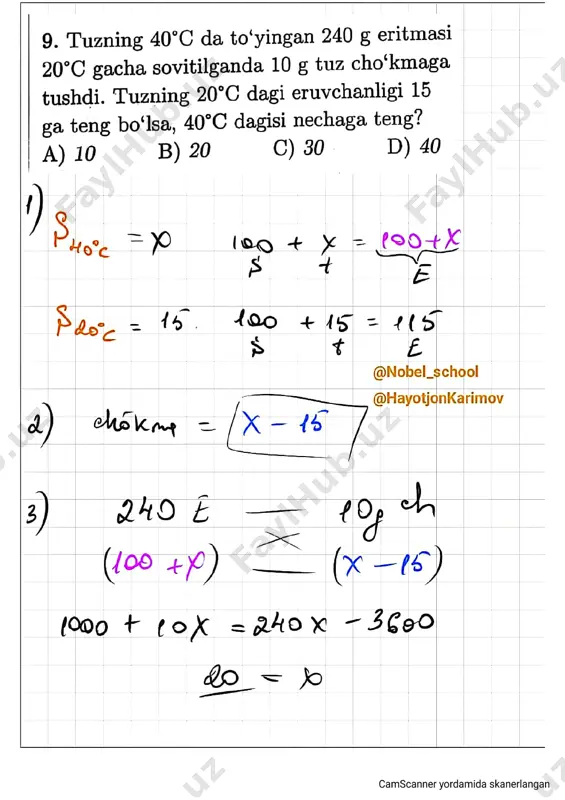 9. Tuzning 40°C da to‘yingan 240 g eritmasi
20°C gacha sovitilganda 10 g tuz cho‘kmaga
tushdi. Tuzning 20°C dagi eruvchanligi 15
ga teng bo‘lsa, 40°C dagisi nechaga teng?
A) 10 B) 20 C) 30 D) 40
1)
S40°C = x 100 + x = 100+x
S t E
S20°C = 15. 100 + 15 = 115
S t E
@Nobel_school
@HayotjonKarimov
2) chökma = x - 15
3) 240 E — 10g ch
(100 + x) — (x - 15)
1000 + 10x = 240x - 3600
20 = x
FaylHub.uz
CamScanner yordamida skanerlangan